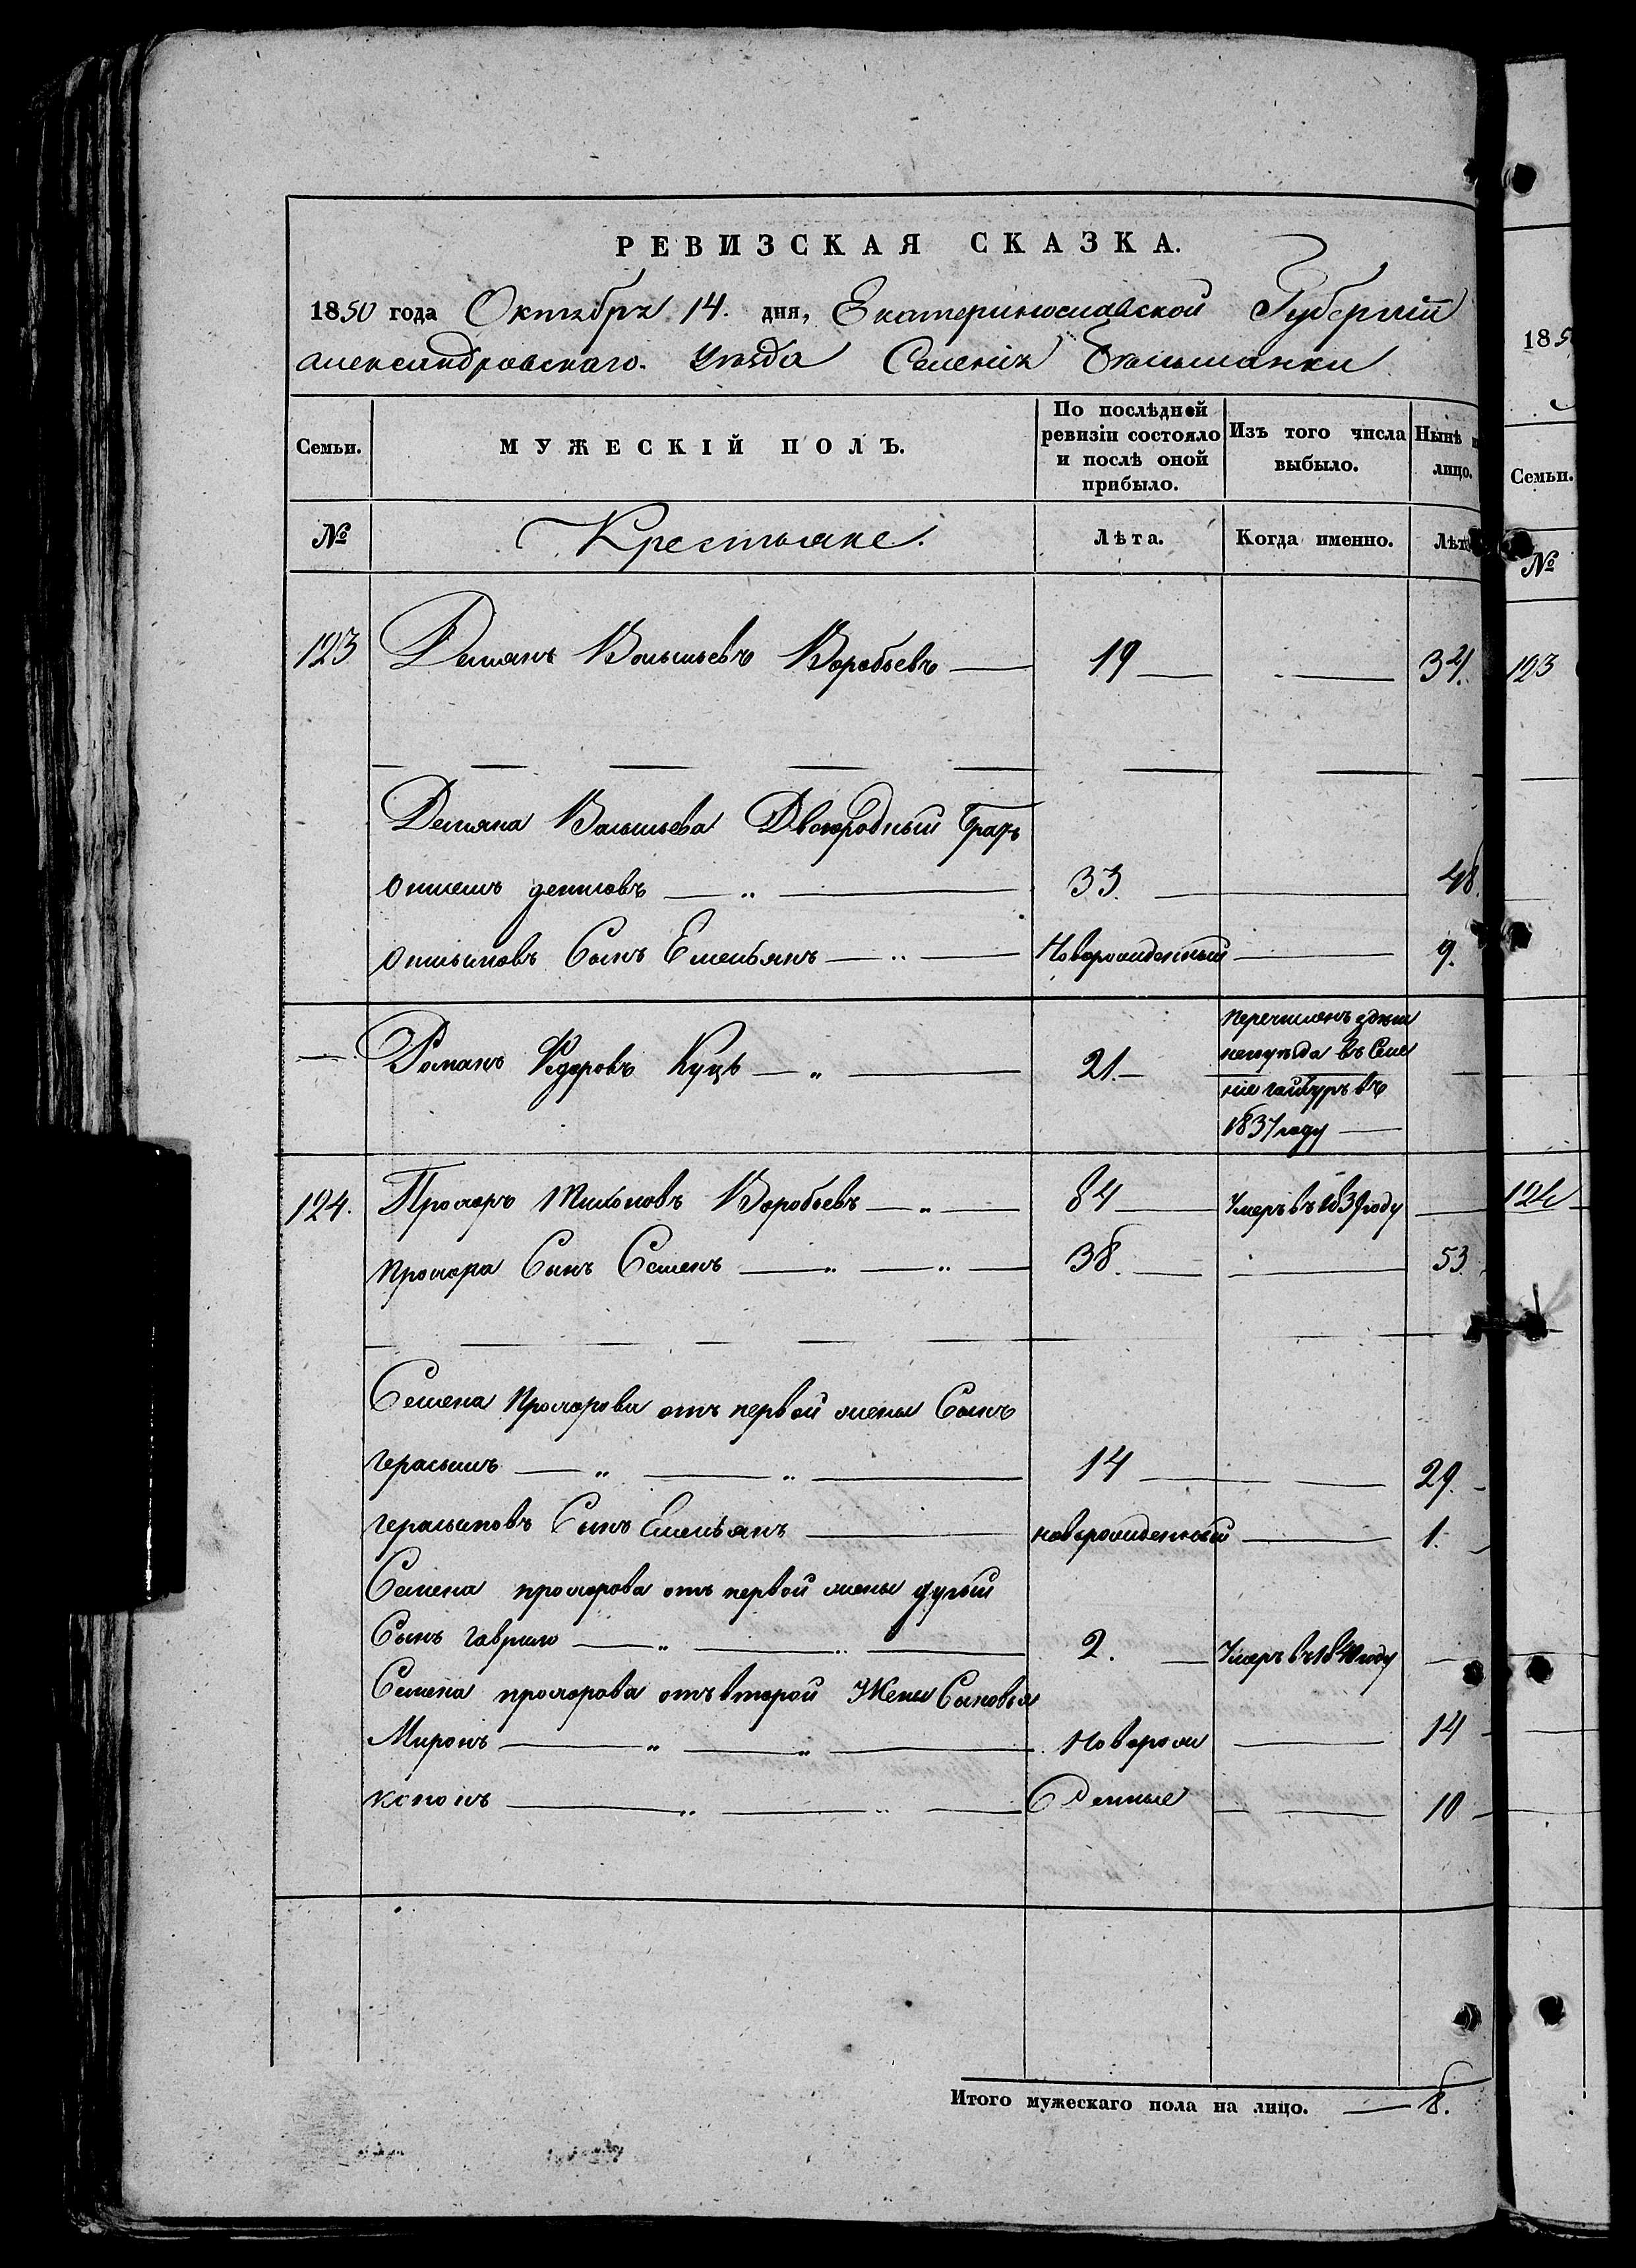 РЕВИЗСКАЯ СКАЗКА.
1850 года Октября 14. дня, Екатеринославской Губернии
Александровскаго. Уѣзда Селенія Белманки
Семьи. МУЖЕСКІЙ ПОЛЪ. По послѣдней ревизіи состояло и послѣ оной прибыло. Изъ того числа выбыло. Нынѣ лицо.
№ Крестьяне. Лѣта. Когда именно. Лѣт
123 Демянъ Васильевъ Воробьевъ — 19 — — 34.
Демяна Васильева Двоюродный Братъ
Онисимъ денисовъ — „ — 33. — 48.
Онисимовъ Сынъ Емельянъ — „ — Новорожденный — 9.
— Романъ Федоровъ Куцъ — „ — 21. — Перечисленъ
уѣзда въ Селе
ніе гайчуръ въ
1837 году —
124. Прохоръ Тихоновъ Воробьевъ — „ — 84 — Умеръ въ 1839 году —
Прохора Сынъ Семенъ — „ — „ — 38. — — 53.
Семена Прохорова отъ первой жены Сынъ
герасимъ — „ — „ — 14 — — 29. —
герасимовъ Сынъ Емельянъ — новорожденный — 1. —
Семена прохорова отъ первой жены другий
Сынъ гаврило — „ — „ — 2. — Умеръ въ 1840 году —
Семена прохорова отъ второй Жены Сыновья
Миронъ — „ — „ — Новорож — 14 —
кононъ — „ — „ — денные — — 10 —
Итого мужескаго пола на лицо. — 8.
185
Семьи.
№
123
124